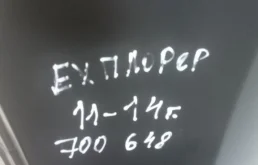 ЕХПЛОРЕР
11-14г.
700 648